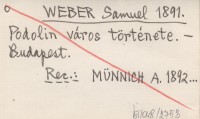 WEBER Samuel 1891.
Podolin város története. –
Budapest.
Rec.: MÜNNICH A. 1892...